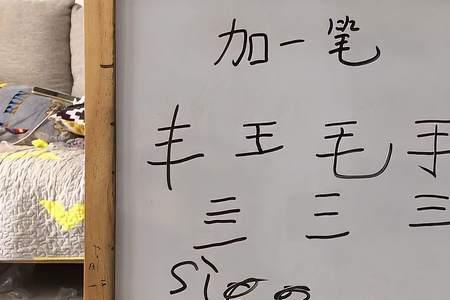 加一笔
丰 王 毛 手
亖 三 三
sì